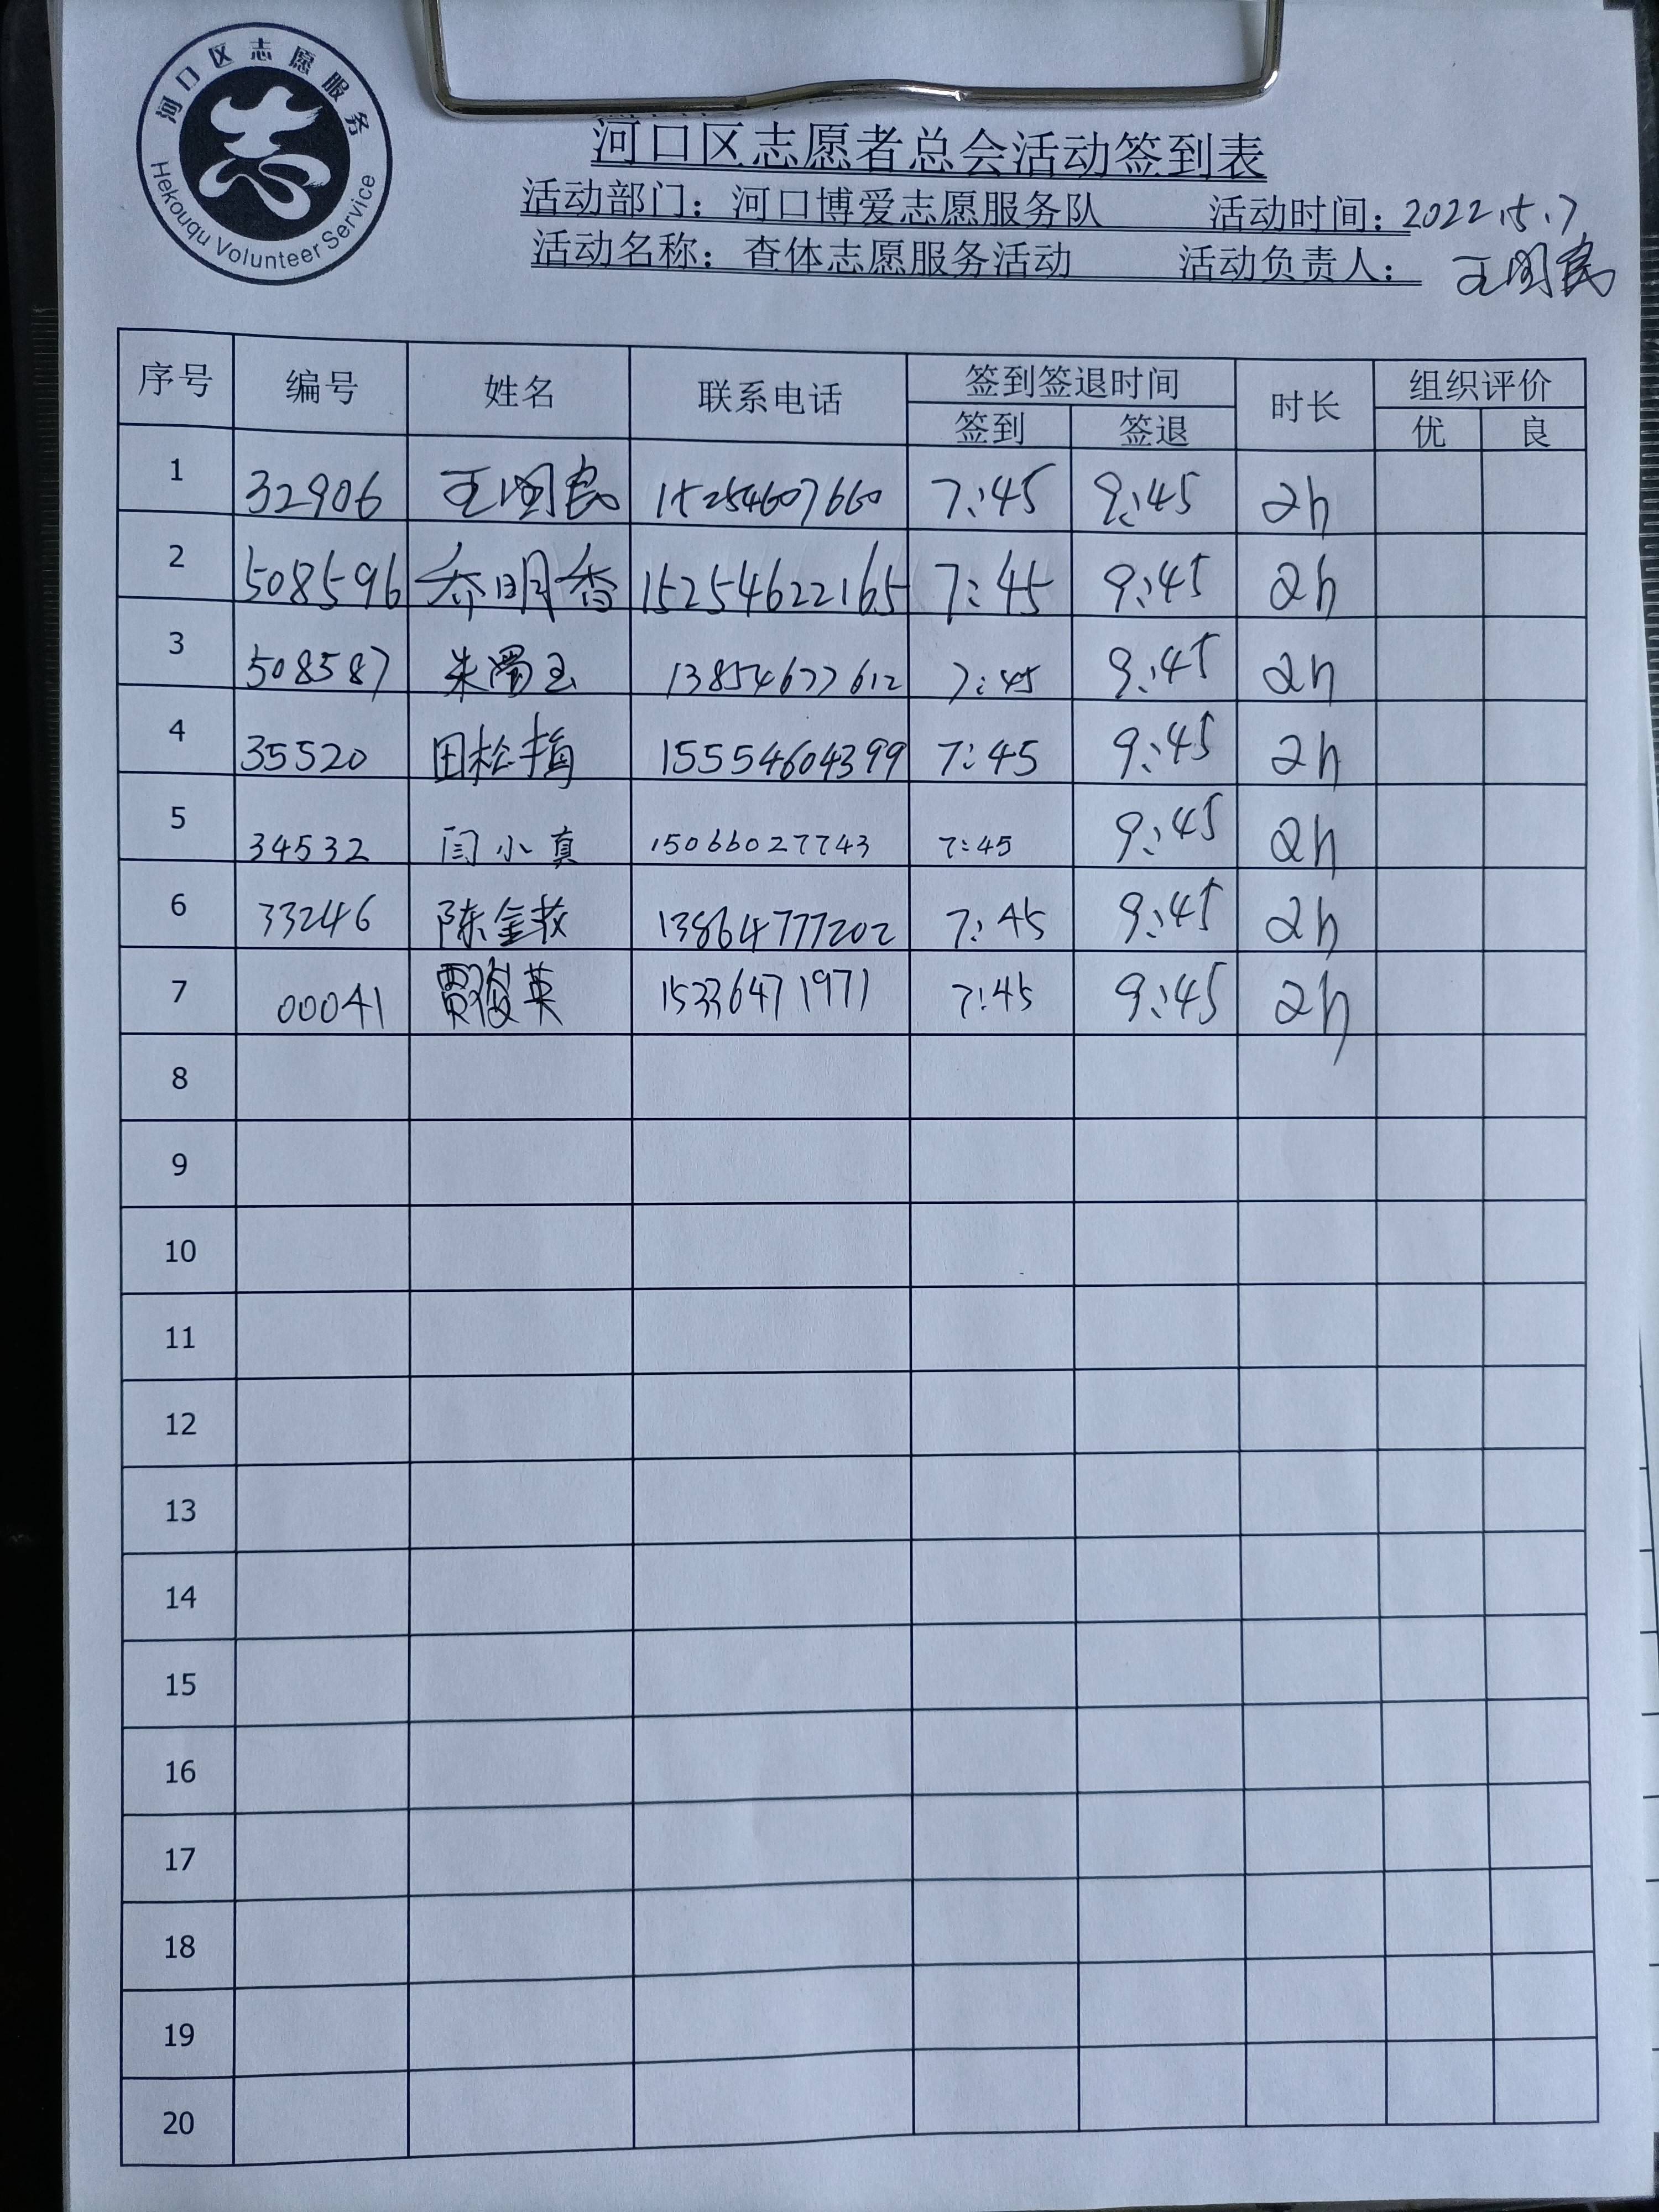 河口区志愿服务
Hekouqu Volunteer Service
河口区志愿者总会活动签到表
活动部门：河口博爱志愿服务队 活动时间：2022.5.7
活动名称：查体志愿服务活动 活动负责人：王国民
序号 编号 姓名 联系电话 签到签退时间 时长 组织评价
签到 签退 优 良
1 32906 王国民 15254607660 7:45 9:45 2h
2 508596 乔明香 15254622165 7:45 9:45 2h
3 508587 朱 玉 13854677612 7:45 9:45 2h
4 35520 田松梅 15554604399 7:45 9:45 2h
5 34532 闫小真 15066027743 7:45 9:45 2h
6 33246 陈金 13864777202 7:45 9:45 2h
7 00041 贾俊英 15336471971 7:45 9:45 2h
8
9
10
11
12
13
14
15
16
17
18
19
20